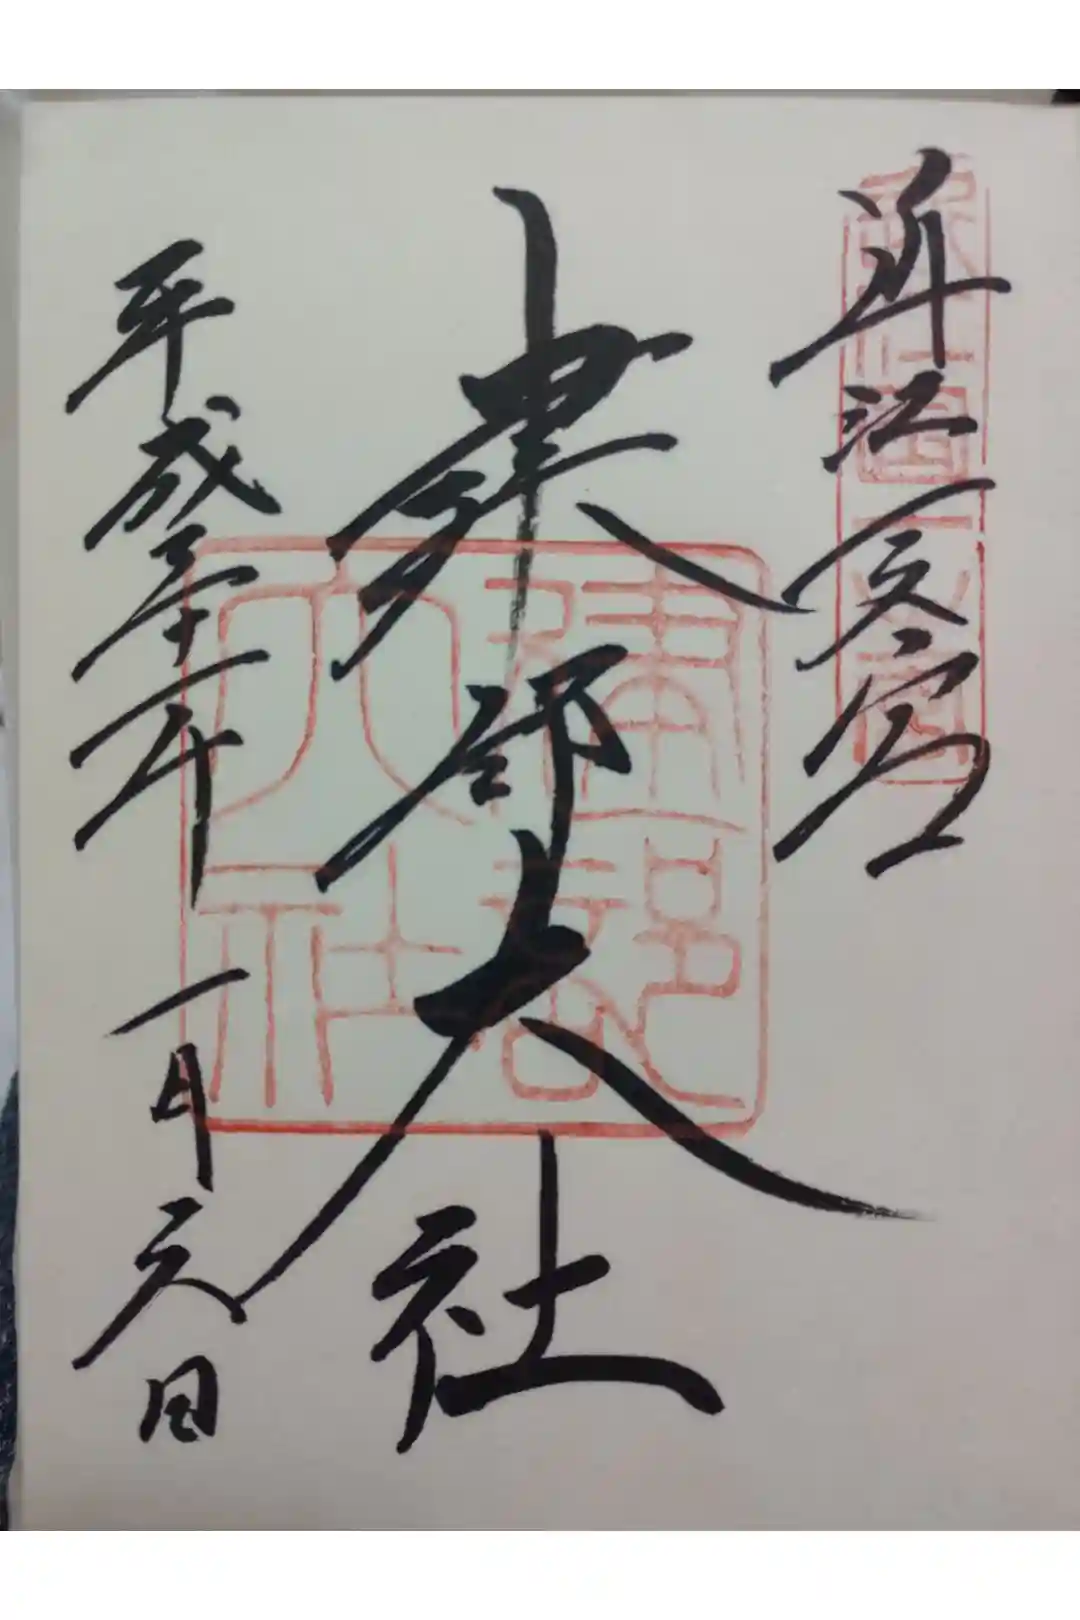 近江國一之宮
近江一之宮
建部大社
建部大社
平成三十一年 一月元日